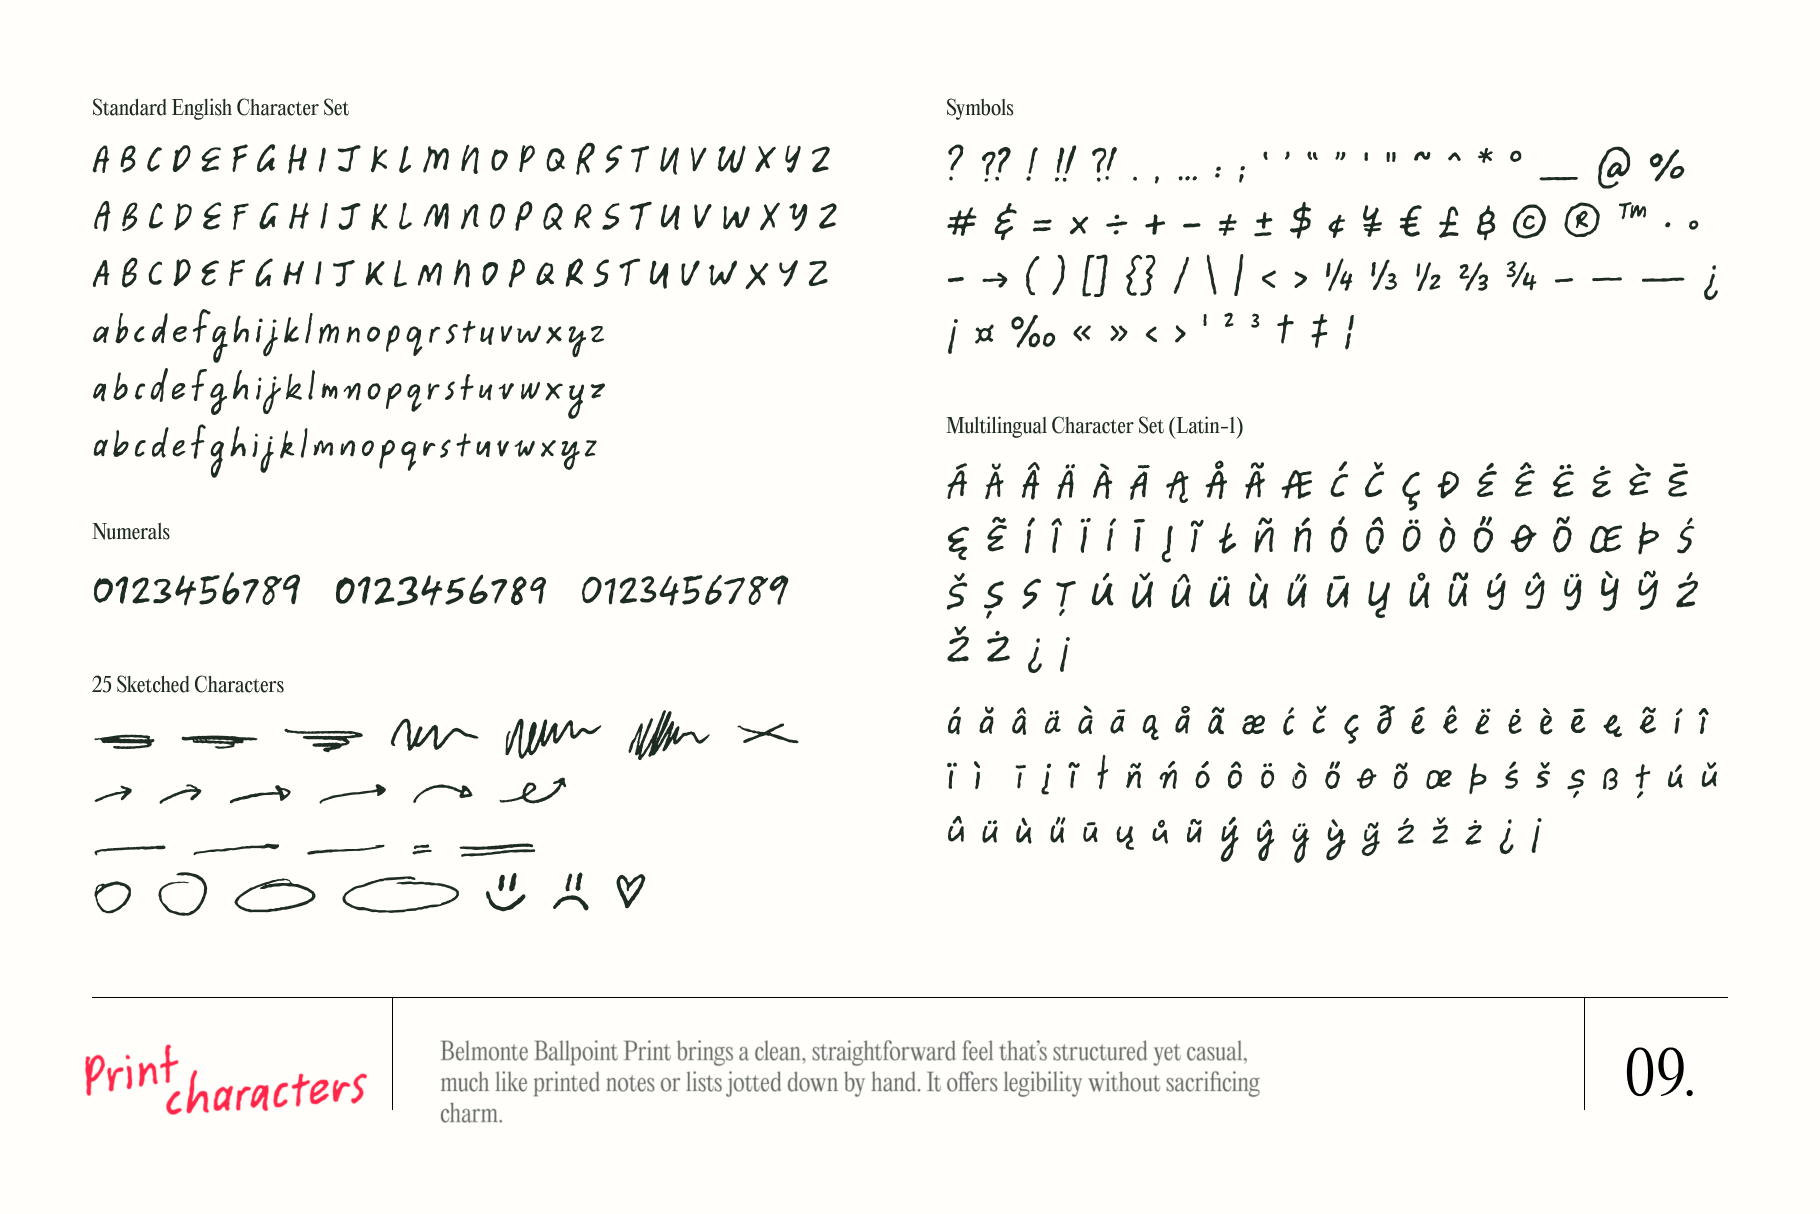 Standard English Character Set
A B C D E F G H I J K L M N O P Q R S T U V W X Y Z
A B C D E F G H I J K L M N O P Q R S T U V W X Y Z
A B C D E F G H I J K L M N O P Q R S T U V W X Y Z
a b c d e f g h i j k l m n o p q r s t u v w x y z
a b c d e f g h i j k l m n o p q r s t u v w x y z
a b c d e f g h i j k l m n o p q r s t u v w x y z
Numerals
0123456789 0123456789 0123456789
25 Sketched Characters
Symbols
? ?? ! !! ?! . , … : ; ‘ ’ “ ” ' " ~ ^ * ° _ @ %
# & = × ÷ + − ≠ ± $ ¢ ¥ € £ ₿ © ® ™ · ∘
- → ( ) [] {} / \ | < > ¼ ⅓ ½ ⅔ ¾ - – — ¿
¡ ¤ ‰ « » ‹ › ¹ ² ³ † ‡ ¦
Multilingual Character Set (Latin-1)
Á Ă Â Ä À Ā Ą Å Ã Æ Ć Č Ç Ð É Ê Ë Ė È Ē
Ę Ẽ Í Î Ï Í Ī Į Ĩ Ł Ñ Ń Ó Ô Ö Ò Ő Ø Õ Œ Þ Ś
Š Ș S Ț Ú Ŭ Û Ü Ù Ű Ū Ų Ů Ũ Ý Ŷ Ÿ Ỳ Ỹ Ź
Ž Ż ¿ ¡
á ă â ä à ā ą å ã æ ć č ç ð é ê ë ė è ē ę ẽ í î
ï ì ī į ĩ ł ñ ń ó ô ö ò ő ø õ œ þ ś š ș ß ț ú ŭ
û ü ù ű ū ų ů ũ ý ŷ ÿ ỳ ỹ ź ž ż ¿ ¡
Print
characters
Belmonte Ballpoint Print brings a clean, straightforward feel that’s structured yet casual,
much like printed notes or lists jotted down by hand. It offers legibility without sacrificing
charm.
09.